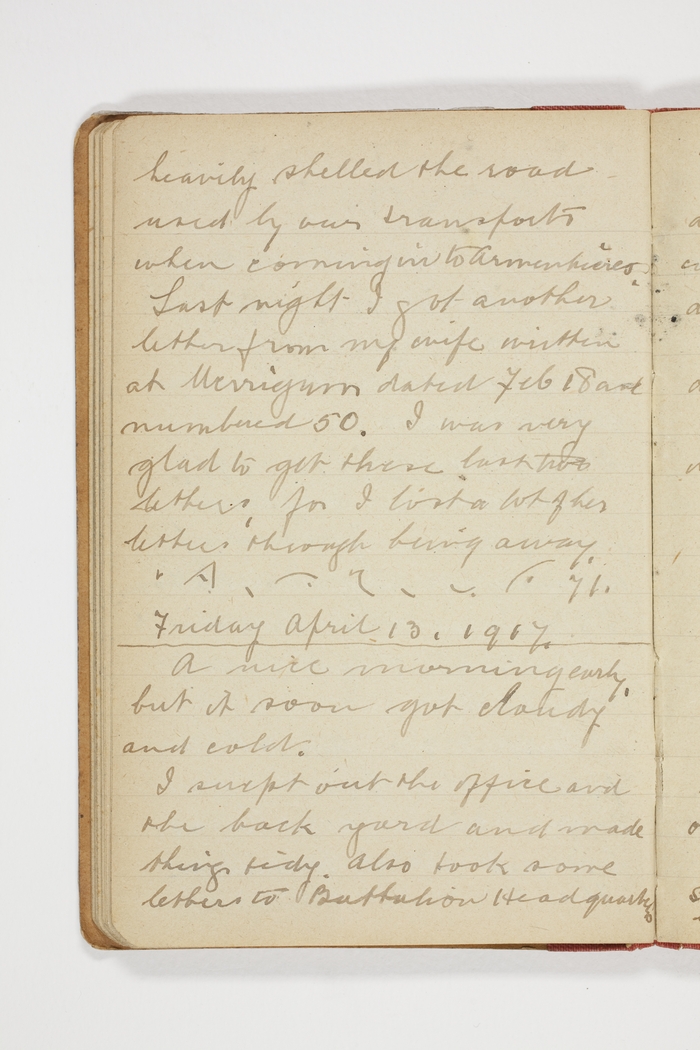 heavily shelled the road
used by our transports
when coming in to Armentieres.
Last night I got another
letter from my wife written
at Merrigum dated Feb 18 and
numbered 50. I was very
glad to get these last two
letters, for I lost a lot of her
letters through being away.
71.
Friday April 13. 1917.
A nice morning early,
but it soon got cloudy
and cold.
I swept out the office and
the back yard and made
things tidy. Also took some
letters to Battalion Headquarters